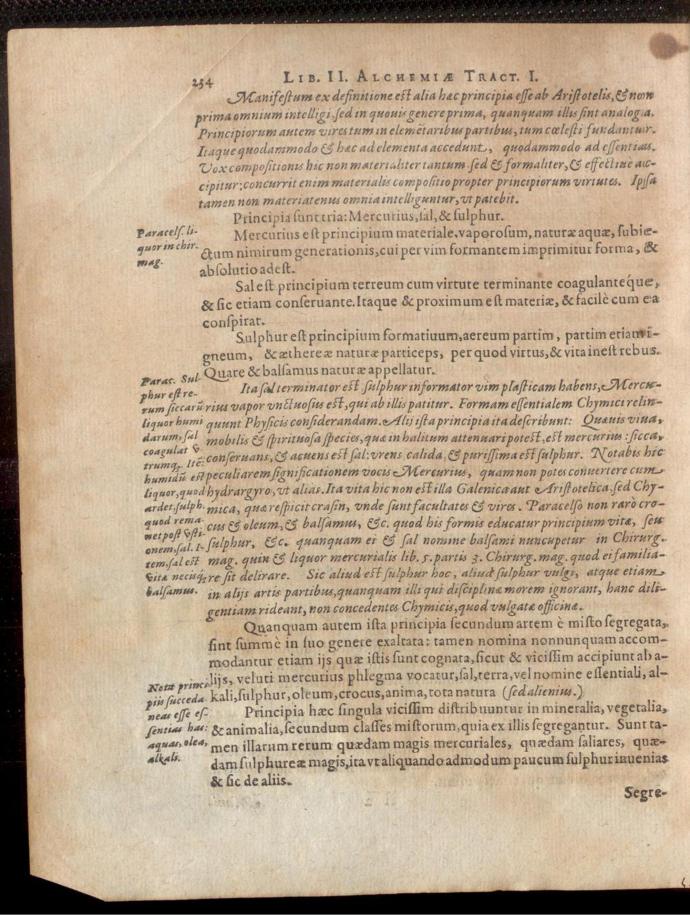 254 LIB. II. ALCHEMIÆ TRACT. I.
Manifestum ex definitione est alia hæc principia esse ab Aristotelis, & non
prima omnium intelligi, sed in quouis genere prima, quanquam illis sint analoga.
Principiorum autem vires tum in elemētaribus partibus, tum cœlesti fundantur.
Itaque quodammodo & hæc ad elementa accedunt, quodammodo ad essentias.
Vox compositionis hic non materialiter tantum sed & formaliter, & effectiue ac-
cipitur: concurrit enim materialis compositio propter principiorum virtutes. Ipsa
tamen non materiatenus omnia intelliguntur, vt patebit.
Principia sunt tria: Mercurius, sal, & sulphur.
Mercurius est principium materiale, vaporosum, naturæ aquæ, subie-
ctum nimirum generationis, cui per vim formantem imprimitur forma, &
absolutio adest.
Sal est principium terreum cum virtute terminante coagulanteq́ue,
& sic etiam conseruante. Itaque & proximum est materiæ, & facilè cum ea
conspirat.
Sulphur est principium formatiuum, aereum partim, partim etiam i-
gneum, & æthereæ naturæ particeps, per quod virtus, & vita inest rebus.
Quare & balsamus naturæ appellatur.
Ita sal terminator est sulphur informator vim plasticam habens, Mercu-
rius vapor vnctuosus est, qui ab illis patitur. Formam essentialem Chymici relin-
quunt Physicis considerandam. Alij ista principia ita describunt: Quæuis viua,
mobilis & spirituosa species, quæ in halitum attenuari potest, est mercurius: sicca,
conseruans, & acuens est sal: vrens calida, & purissima est sulphur. Notabis hic
peculiarem significationem vocis Mercurius, quam non potes conuertere cum
hydrargyro, vt alias. Ita vita hic non est illa Galenica aut Aristotelica, sed Chy-
mica, quæ respicit crasin, vnde sunt facultates & vires. Paracelso non rarò cro-
cus & oleum, & balsamus, &c. quod his formis educatur principium vitæ, seu
sulphur, &c. quanquam ei & sal nomine balsami nuncupetur in Chirurg.
mag. quin & liquor mercurialis lib. 5. partis 3. Chirurg. mag. quod ei familia-
re sit delirare. Sic aliud est sulphur hoc, aliud sulphur vulgi, atque etiam
in alijs artis partibus, quanquam illi qui disciplinæ morem ignorant, hanc dili-
gentiam rideant, non concedentes Chymicis, quod vulgatæ officinæ.
Quanquam autem ista principia secundum artem è misto segregata,
sint summè in suo genere exaltata: tamen nomina nonnunquam accom-
modantur etiam ijs quæ istis sunt cognata, sicut & vicissim accipiunt ab a-
lijs, veluti mercurius phlegma vocatur, sal, terra, vel nomine essentiali, al-
kali, sulphur, oleum, crocus, anima, tota natura (sed alienius.)
Principia hæc singula vicissim distribuuntur in mineralia, vegetalia,
& animalia, secundum classes mistorum, quia ex illis segregantur. Sunt ta-
men illarum rerum quædam magis mercuriales, quædam saliares, quæ-
dam sulphureæ magis, ita vt aliquando admodum paucum sulphur inuenias
& sic de aliis.
Segre-
Paracels. li-
quor in chir.
mag.
Parac. Sul-
phur est re-
rum siccarū
liquor humi
darum, sal
coagulat v
trumq́. Itē:
humidū est
liquor, quod
ardet, sulph.
quod rema-
net post vsti-
onem, sal. I-
tem, sal est
vitæ necisq́;
balsamus.
Notæ princi
piis succeda
neas esse es-
sentias has:
aquas, olea,
alkali.